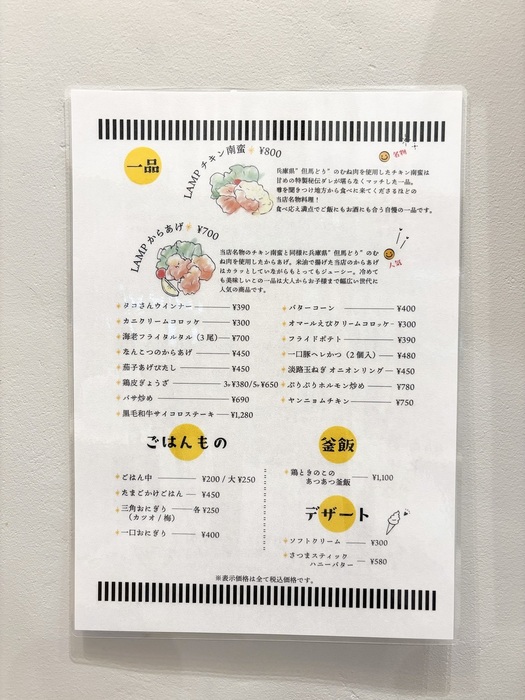 一品
LAMP チキン南蛮 ¥800
名物
兵庫県"但馬どり"のむね肉を使用したチキン南蛮は
甘めの特製秘伝ダレが堪らなくマッチした一品。
噂を聞きつけ地方から食べに来てくださるほどの
当店名物料理！
食べ応え満点でご飯にもお酒にも合う自慢の一品です。
LAMP からあげ ¥700
人気
当店名物のチキン南蛮と同様に兵庫県"但馬どり"のむ
ね肉を使用したからあげ。米油で揚げた当店のからあげ
はカラッとしていながらもとってもジューシー。冷めて
も美味しいこの一品は大人からお子様まで幅広い世代に
人気の商品です。
タコさんウインナー ¥390
カニクリームコロッケ ¥300
海老フライタルタル（3尾） ¥700
なんこつのからあげ ¥450
茄子あげびたし ¥450
鶏皮ぎょうざ 3ヶ¥380/5ヶ¥650
バサ炒め ¥690
黒毛和牛サイコロステーキ ¥1,280
バターコーン ¥400
オマールえびクリームコロッケ ¥300
フライドポテト ¥390
一口豚ヘレかつ（2個入） ¥480
淡路玉ねぎ オニオンリング ¥450
ぷりぷりホルモン炒め ¥780
ヤンニョムチキン ¥750
ごはんもの
ごはん中 ¥200 / 大 ¥250
たまごかけごはん ¥450
三角おにぎり 各 ¥250
（カツオ / 梅）
一口おにぎり ¥400
釜飯
鶏ときのこの
あつあつ釜飯 ¥1,100
デザート
ソフトクリーム ¥300
さつまスティック
ハニーバター ¥580
※表示価格は全て税込価格です。